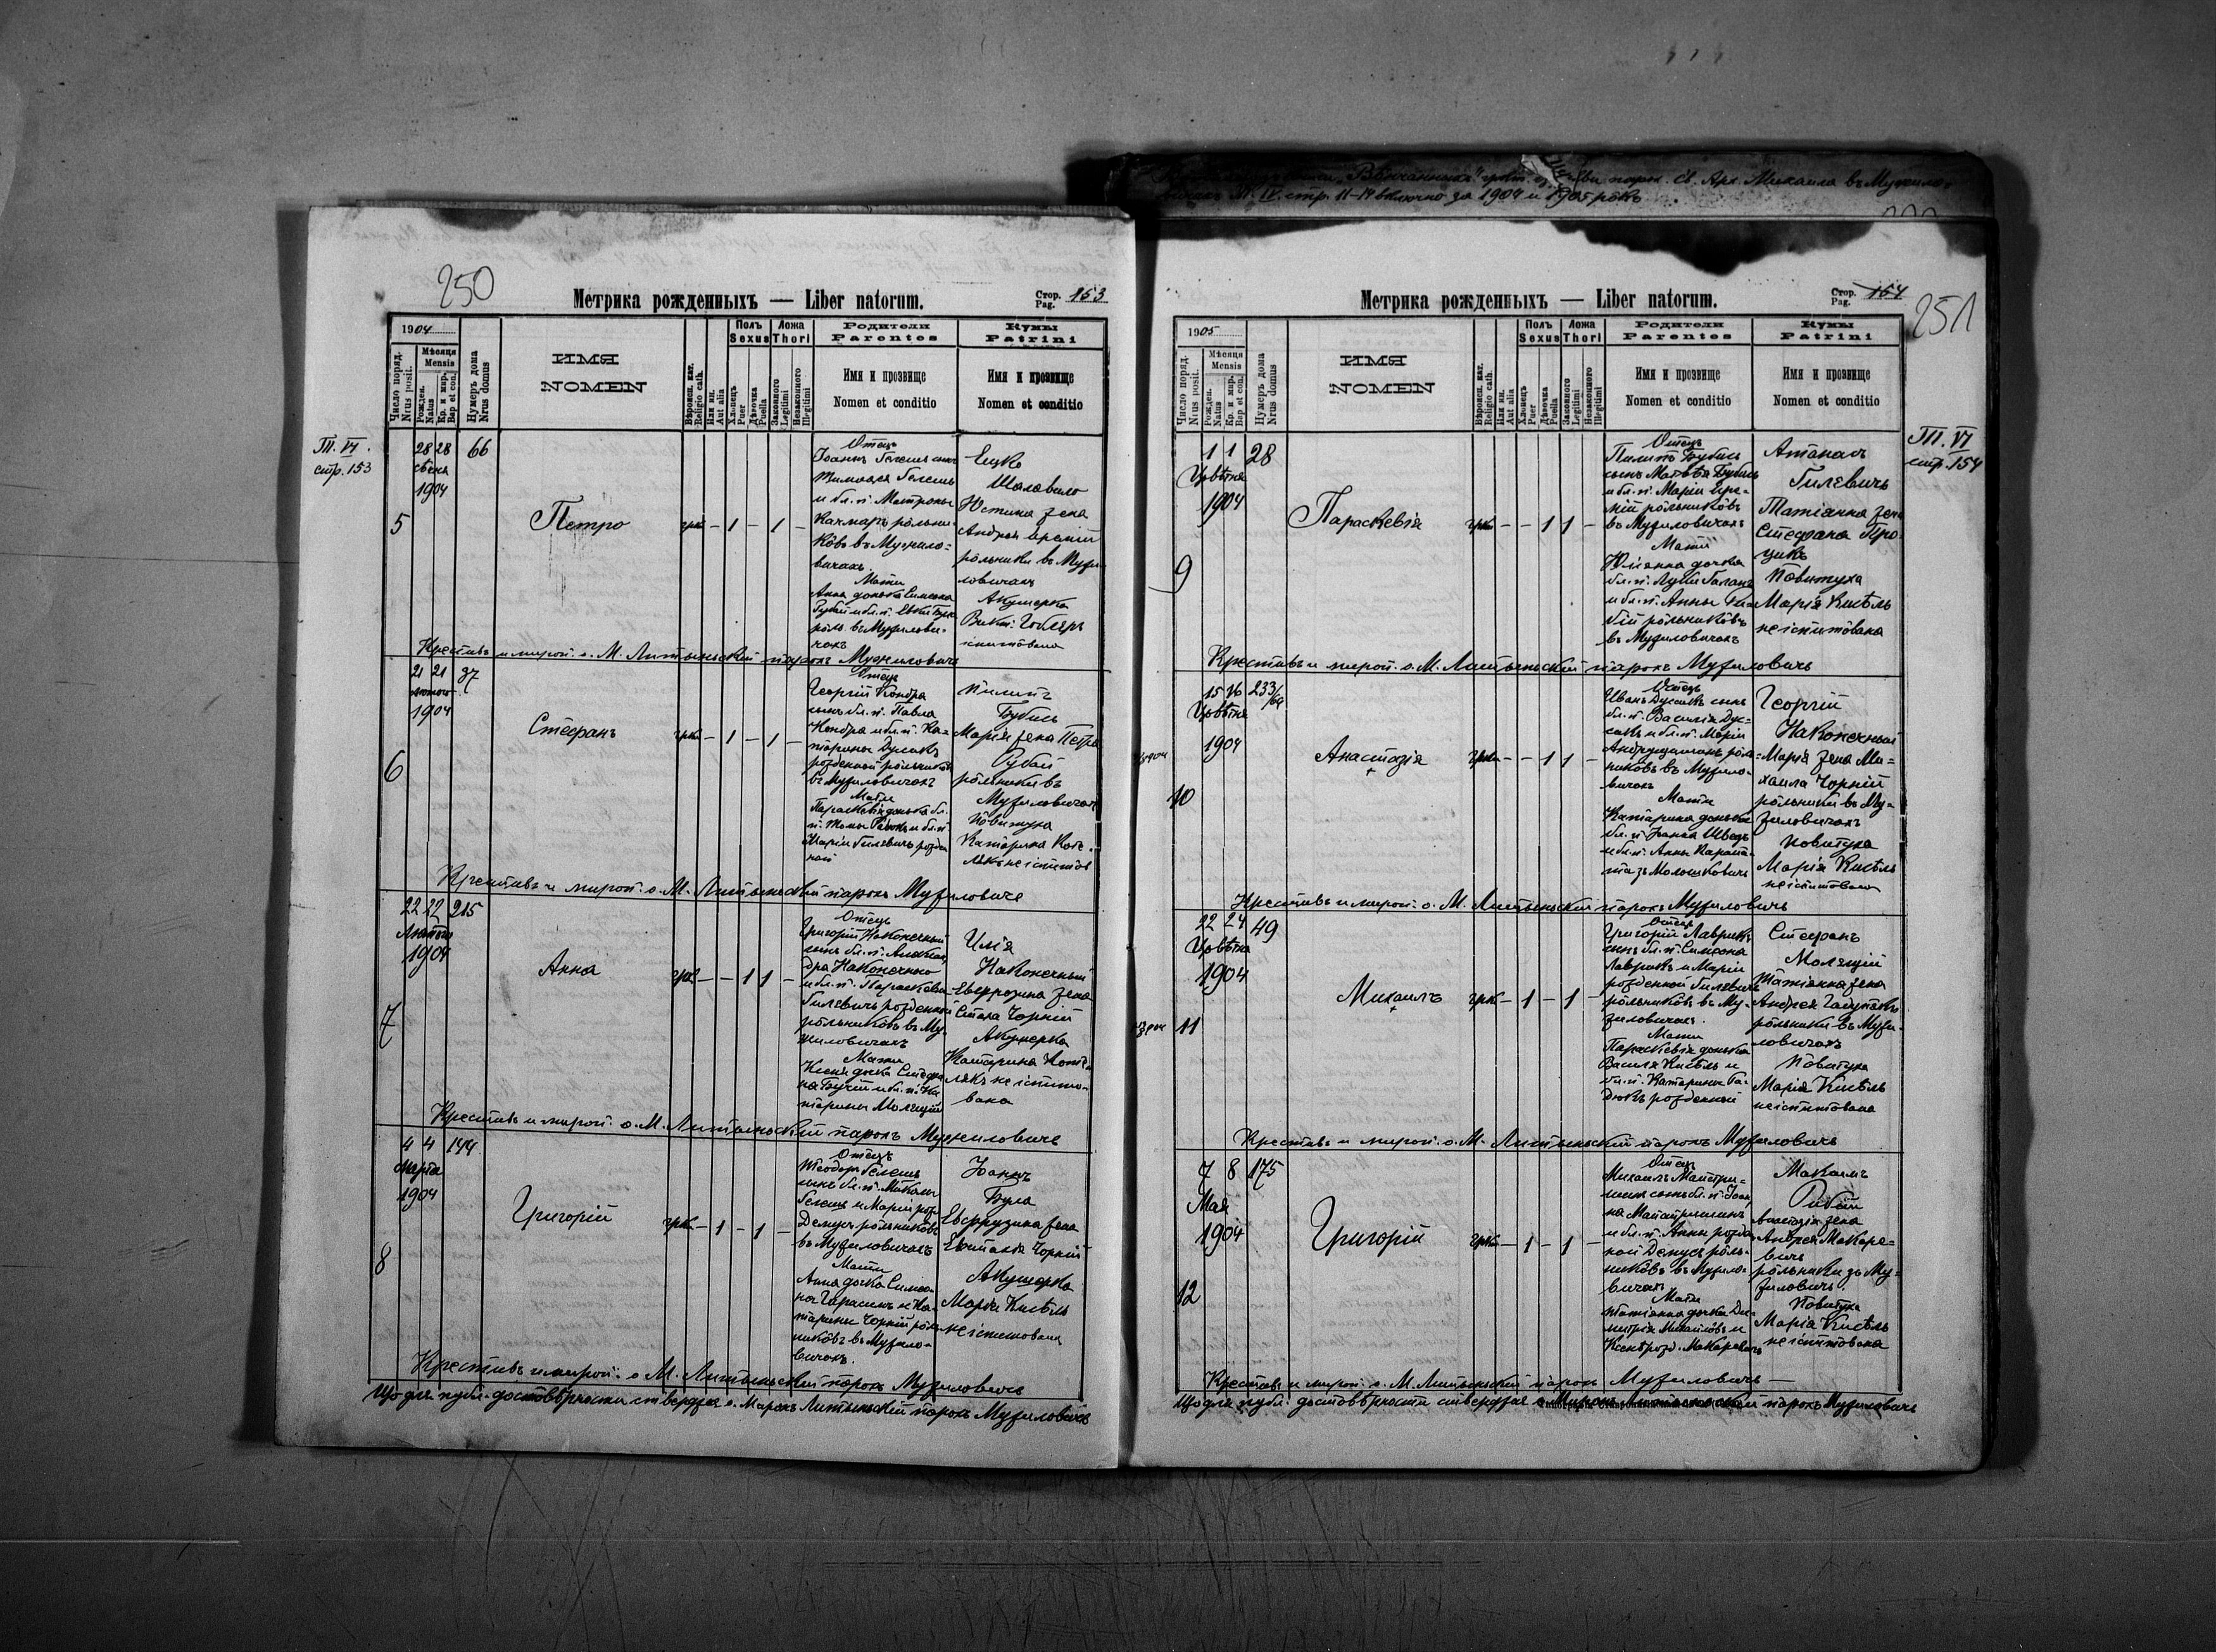 250
Метрика рожденныхъ — Liber natorum.
Стор. Pag. 153
1904
Число поряд. Nrus posit.
Мѣсяця Mensis
Рожден. Natus
Кр. и мир. Bap et con.
Нумеръ дома Nrus domus
ИМЯ
NOMEN
Вѣроисп. кат. Religio cath.
Или ин. Aut alia
Полъ Sexus
Хлопецъ Puer
Дѣвочка Puella
Ложа Thori
Законного Legitimi
Незаконного Illegitimi
Родители
Parentes
Имя и прозвище
Nomen et conditio
Кумы
Patrini
Имя и прозвище
Nomen et conditio
Т. VI.
стр. 153
5
28 28
1904
66
Петро
грк — 1 — 1 —
Отець
Іоаннъ Гелешъ сынъ
и бл. п. Матроны
Качмаръ рôльни-
кôвъ въ Мужило-
вичахъ.
Мати
Анна донька Симеона
Шаловило
Юстина жена
Андрея
рôльники въ Мужи-
ловичахъ
Акушерка
Крестивъ и мирой. о. М. Литыньскій парохъ Мужиловичъ
6
21 21
лютого
1904
37
Стефанъ
грк — 1 — 1 —
Отець
Георгій Кондра
сынъ бл. п. Павла
Кондра и бл. п. Ка-
тарины Дусакъ
рожденной рôльникôв
въ Мужиловичахъ
Мати
Параскевія донька бл.
Маріи Гилевичъ рожден
ной
Пилипъ
Бубисъ
Марія жена Петра
Рубай
рôльники въ
Мужиловичах
Повитуха
Катарина
Крестивъ и мирой. о. М. Литыньскій парохъ Мужиловиче
7
22 22
Лютого
1904
215
Анна
грк — — 1 1 —
Отець
Григорій Наконечный
сынъ бл. п. Алексан
дра Наконечного
и бл. п. Параскевіи
Гилевичъ рожденной
рôльникôвъ въ Му-
жиловичахъ
Мати
Ксеня дочка Стефа
тарины Молящій
Илія
Наконечный
Евфрозина жена
Чорній
Акушерка
Катарина
лякъ неіспито-
вана
Крестивъ и мирой. о. М. Литыньскій парохъ Мужиловиче
8
4 4
Марта
1904
144
Григорій
грк — 1 — 1 —
Отець
Теодоръ Гелешъ
сынъ бл. п. Миколы
Гелешъ и Маріи рож
Демусъ рôльникôвъ
въ Мужиловичахъ
Мати
Анна дочка Симео-
на Гарасимъ и Ка-
тарины Чорній рôль
никôвъ въ Мужило-
вичахъ.
Іоаннъ
Була
Евфрузина жена
Чорній
Акушерка
Марія Кисѣль
неіспитована
Крестивъ и мирой. о. М. Литыньскій парохъ Мужиловичъ
Що для публ. достовѣрности ствердзяе о. Маркъ Литыньскій парохъ Мужиловичъ
св. Арх. Михаила въ Мужило-
стр. 11-14 включно за 1904 и 1905 рôкъ
Метрика рожденныхъ — Liber natorum.
Стор. Pag. 154
251
1905
Число поряд. Nrus posit.
Мѣсяця Mensis
Рожден. Natus
Кр. и мир. Bap et con.
Нумеръ дома Nrus domus
ИМЯ
NOMEN
Вѣроисп. кат. Religio cath.
Или ин. Aut alia
Полъ Sexus
Хлопецъ Puer
Дѣвочка Puella
Ложа Thori
Законного Legitimi
Незаконного Illegitimi
Родители
Parentes
Имя и прозвище
Nomen et conditio
Кумы
Patrini
Имя и прозвище
Nomen et conditio
Т. VI
стр. 154
9
1 1
Цвѣтня
1904
28
Параскевія
грк — — 1 1 —
Отець
Пилипъ Бубисъ
сынъ Матвѣя Бубисъ
и бл. п. Маріи
рôльникôвъ
въ Мужиловичахъ
Мати
Юліянна дочка
и бл. п. Анны
рôльникôвъ
въ Мужиловичахъ
Атанасъ
Гилевичъ
Татіанна жена
Стефана Про-
цикъ
Повитуха
Марія Кисѣль
неіспитована
Крестивъ и мирой. о. М. Литыньскій парохъ Мужиловичъ
10
15 16
Цвѣтня
1904
233/69
Анастазія
грк — — 1 1 —
Отець
Иванъ Дусакъ сынъ
бл. п. Василія Дус-
сакъ и бл. п. Маріи
никôвъ въ Мужило-
вичахъ
Мати
Катарина донька
бл. п. Іоанна Шведъ
и бл. п. Анны
зъ Молошковичъ
Георгій
Наконечный
Марія жена Ми-
хаила Чорній
рôльники въ Му-
жиловичахъ
Повитуха
Марія Кисѣль
неіспитована
Крестивъ и мирой. о. М. Литыньскій парохъ Мужиловичъ
11
22 24
Цвѣтня
1904
49
Михаилъ
грк — 1 — 1 —
Отець
Григорій Лаврикъ
сынъ бл. п. Симеона
Лаврикъ и Маріи
рожденной Гилевичъ
рôльникôвъ въ Му-
жиловичахъ.
Мати
Параскевія донька
Василя Кисѣль и
бл. п. Катарины Га-
дюкъ рожденной
Стефанъ
Молящій
Татіанна жена
Андрея
рôльники въ Мужи-
ловичахъ
Повитуха
Марія Кисѣль
неіспитована
Крестивъ и мирой. о. М. Литыньскій парохъ Мужиловичъ
12
7 8
Мая
1904
175
Григорій
грк — 1 — 1 —
Отець
Михаилъ Майстри-
шинъ сынъ бл. п. Іоан
на Майстришинъ
и бл. п. Анны рожде
ной Демусъ рôль-
никôвъ въ Мужило-
вичахъ
Мати
Татіанна дочка Ди-
митрія Михайлôвъ и
Ксенѣ рожд. Макаревичъ
Максимъ
Рибай
Анастазія жена
Андрея Макаре-
вичъ
рôльники зъ Му-
жиловичъ.
Повитуха
Марія Кисѣль
неіспитована
Крестивъ и мирой. о. М. Литыньскій парохъ Мужиловичъ —
Що для публ. достовѣрности ствердзяе о. Маркъ Литыньскій парохъ Мужиловичъ